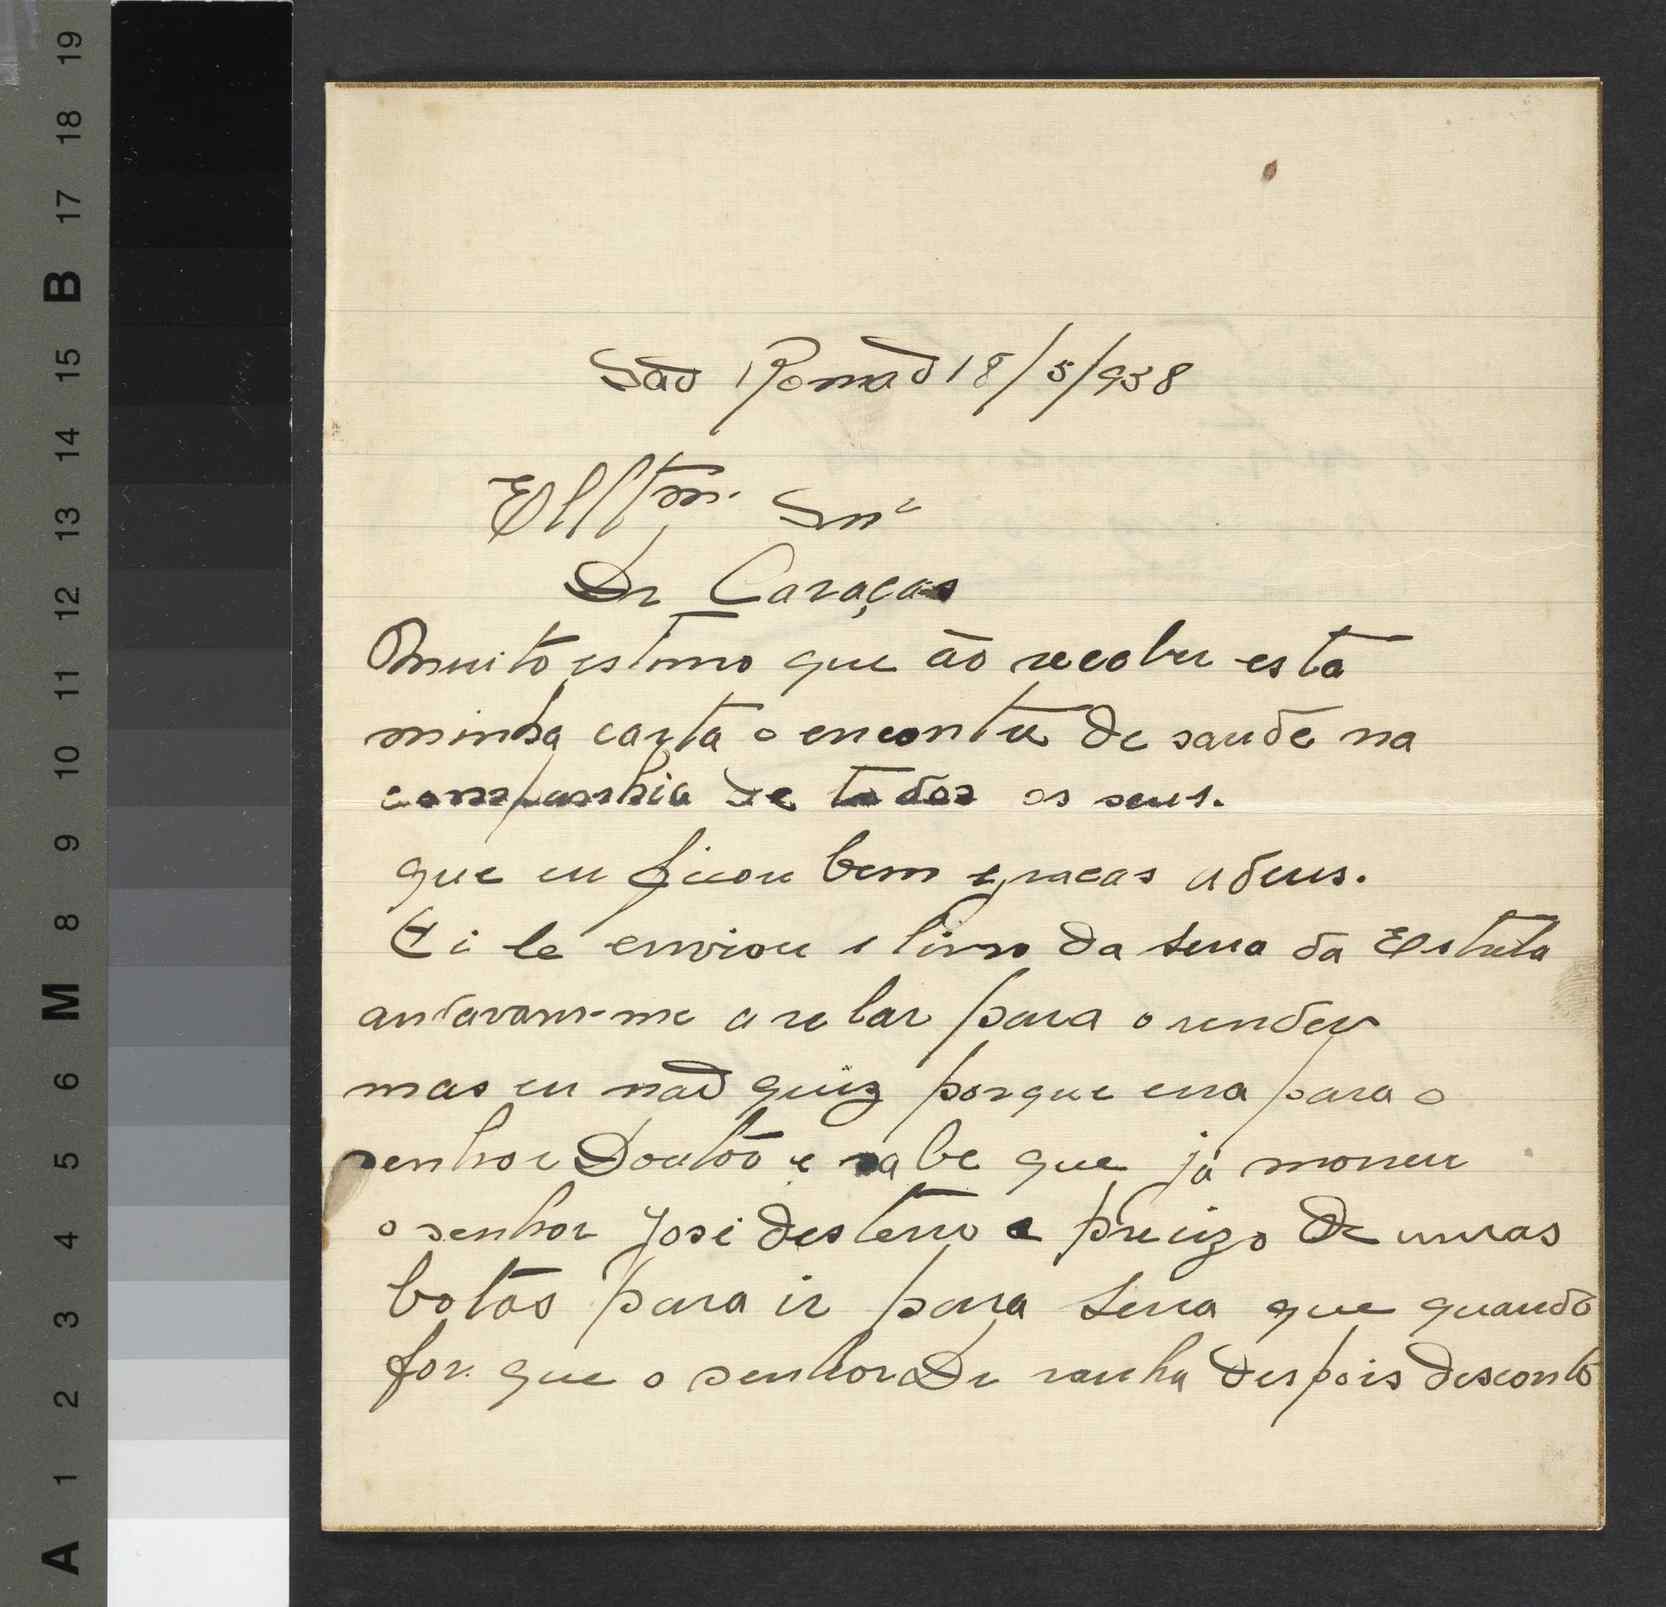 São Romão 18/5/938
Elltm. Snr
Dr Caraças
Muito estimo que ão receber esta
minha carta o encontre de saude na
companhia de todos os seus.
que eu ficou bem gracas adeus.
Ei le enviou o livro da serra da Estrela
andavam-me a relar para o render
mas eu não quiz porque erra para o
senhor Doutor e sabe que já morreu
o senhor José desterro e precizo de umas
botas para ir para serra que quando
for que o senhor Dr venha despois desconto
A 1 2 3 4 5 6 M 8 9 10 11 12 13 14 15 B 17 18 19